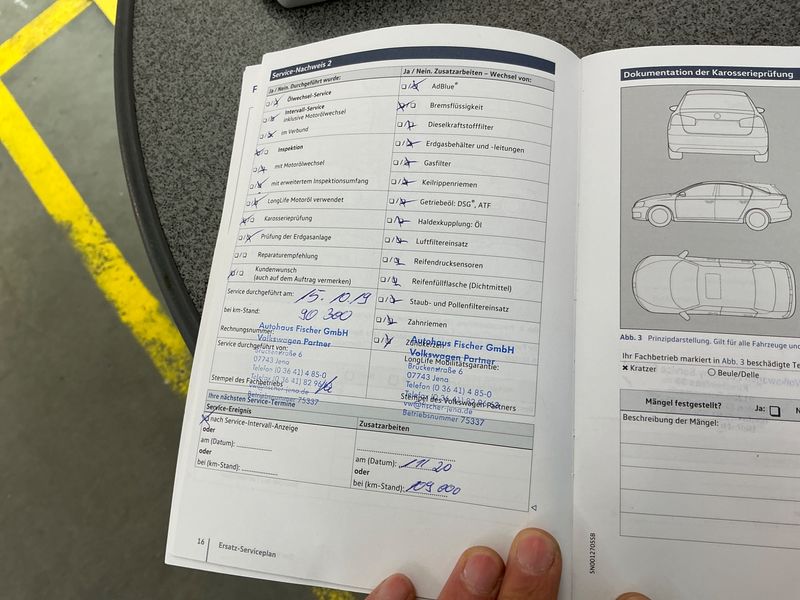 Service-Nachweis 2
Ja / Nein. Durchgeführt wurde:
Ölwechsel-Service
Intervall-Service
inklusive Motorölwechsel
im Verbund
Inspektion
mit Motorölwechsel
mit erweitertem Inspektionsumfang
LongLife Motoröl verwendet
Karosserieprüfung
Prüfung der Erdgasanlage
Reparaturempfehlung
Kundenwunsch
(auch auf dem Auftrag vermerken)
Service durchgeführt am: 15. 10.19
bei km-Stand: 90 300
Rechnungsnummer:
Autohaus Fischer GmbH
Service durchgeführt von:
Volkswagen Partner
Brückenstraße 6
07743 Jena
Telefon (0 36 41) 4 85-0
Stempel des Fachbetriebs
Betriebsnummer 75337
Ja / Nein. Zusatzarbeiten – Wechsel von:
AdBlue®
Bremsflüssigkeit
Dieselkraftstofffilter
Erdgasbehälter und -leitungen
Gasfilter
Keilrippenriemen
Getriebeöl: DSG®, ATF
Haldexkupplung: Öl
Luftfiltereinsatz
Reifendrucksensoren
Reifenfüllflasche (Dichtmittel)
Staub- und Pollenfiltereinsatz
Zahnriemen
Autohaus Fischer GmbH
Volkswagen Partner
LongLife Mobilitätsgarantie:
Brückenstraße 6
07743 Jena
Telefon (0 36 41) 4 85-0
Stempel des Volkswagen Partners
vw@fischer-jena.de
Betriebsnummer 75337
Ihre nächsten Service-Termine
Service-Ereignis
nach Service-Intervall-Anzeige
oder
am (Datum):
oder
bei (km-Stand):
Zusatzarbeiten
am (Datum): 11 20
oder
bei (km-Stand): 109 000
16
Ersatz-Serviceplan
Dokumentation der Karosserieprüfung
Abb. 3 Prinzipdarstellung. Gilt für alle Fahrzeuge
Ihr Fachbetrieb markiert in Abb. 3 beschädigte
Kratzer
Beule/Delle
Mängel festgestellt? Ja:
Beschreibung der Mängel:
5N0012705SB